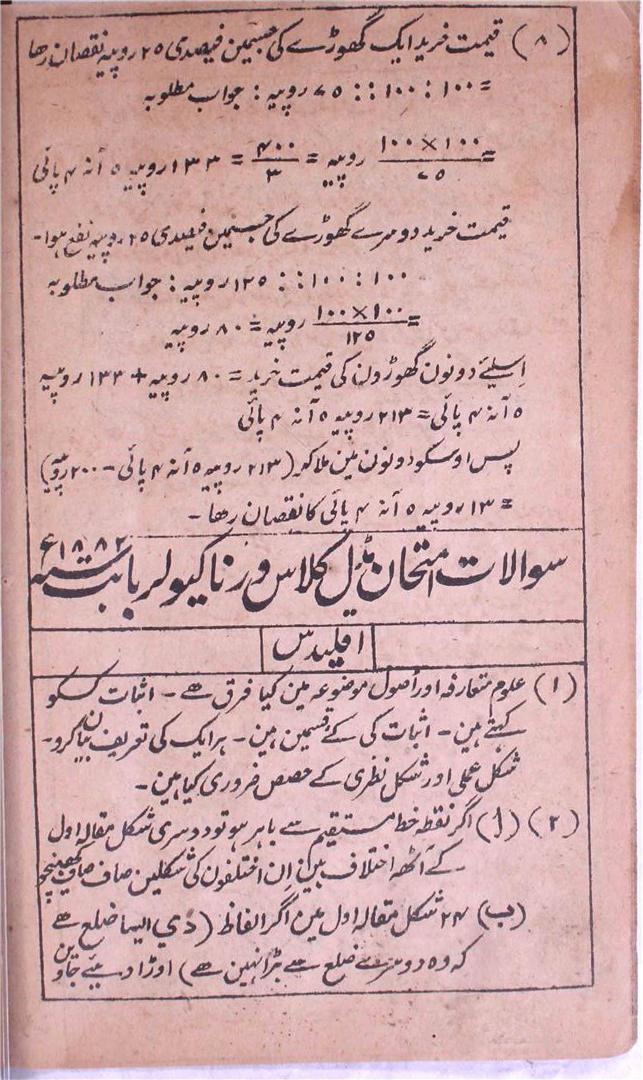 (۸) قیمت خرید ایک گھوڑے کی جسمین فیصدی ۲۵ روپیہ نقصان رھا
= ۱۰۰ : ۱۰۰ :: ۷۵ روپیہ : جواب مطلوبہ
= ۱۰۰×۱۰۰ / ۷۵ روپیہ = ۴۰۰ / ۳ = ۱۳۳ روپیہ ۵ آنہ ۴ پائی
قیمت خرید دوسرے گھوڑے کی جسمین فیصدی ۲۵ روپیہ نفع ہوا۔
۱۰۰ : ۱۰۰ :: ۱۲۵ روپیہ : جواب مطلوبہ
= ۱۰۰×۱۰۰ / ۱۲۵ روپیہ = ۸۰ روپیہ
اسلئے دونون گھوڑون کی قیمت خرید = ۸۰ روپیہ + ۱۳۳ روپیہ
۵ آنہ ۴ پائی = ۲۱۳ روپیہ ۵ آنہ ۴ پائی
پس اوسکو دونون مین ملاکر (۲۱۳ روپیہ ۵ آنہ ۴ پائی - ۲۰۰ روپیہ)
= ۱۳ روپیہ ۵ آنہ ۴ پائی کا نقصان رھا۔
سوالات امتحان مڈل کلاس ورناکیولر بابت سنہ ۱۸۸۲ء
اقلیدس
(۱) علوم متعارفہ اور اصول موضوعہ مین کیا فرق ھے ۔ اثبات کسکو
کہتے ہین ۔ اثبات کی کے قسمین ہین ۔ ہر ایک کی تعریف بیان کرو۔
شکل عملی اور شکل نظری کے حصص ضروری کیا ہین۔
(۲) (ا) اگر نقطہ خط مستقیم سے باہر ہو تو دوسری شکل مقالہ اول
کے آٹھہ اختلاف ہین ان اختلفون کی شکلین صاف صاف کھینچو
(ب) ۲۴ شکل مقالہ اول مین اگر الفاظ (دی ایسا ضلع ھے
کہ وہ دوسرے ضلع سے بڑا نہین ھے) اوڑا دیئے جاوین